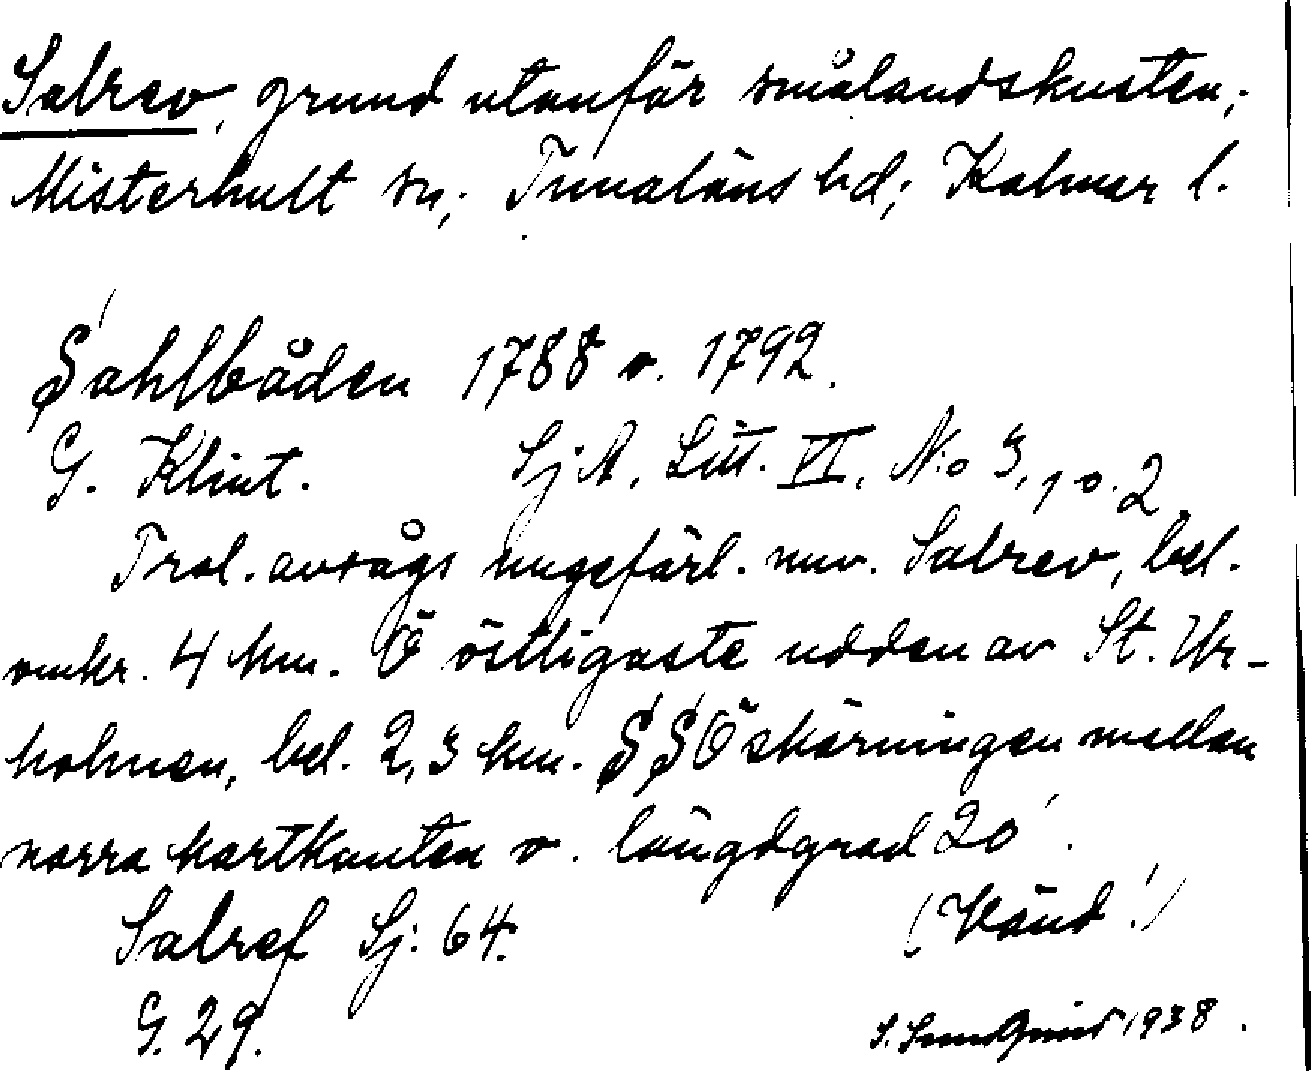 Salrev, grund utanför smålandskusten;
Misterhult sn; Tunaläns hd; Kalmar l.
Sahlbåden 1788 o. 1792.
G. Klint. SjA, Litt. VI, N:o 3, 1 o. 2
Trol. avsågs ungefärl. nuv. Salrev, bel.
omkr. 4 km. Ö östligaste udden av St. Ur-
holmen, bel. 2,3 km. S S Ö skärningen mellan
norra kartkanten o. längdgrad 20'.
Salref Sj: 64. (Vänd!)
G. 29. 1938.